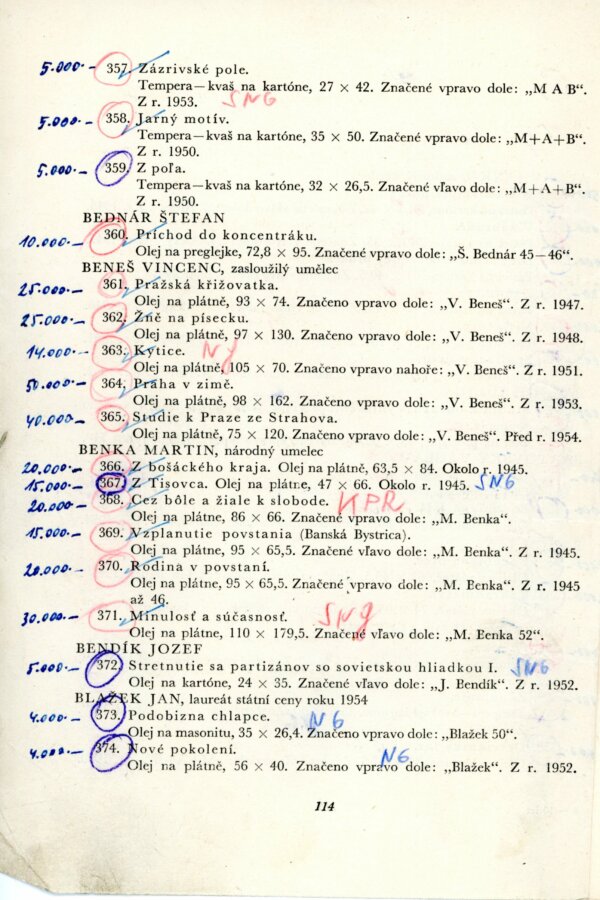 5.000.- 357. Zázrivské pole.
Tempera—kvaš na kartóne, 27 × 42. Značené vpravo dole: „M A B“.
Z r. 1953. SNG
5.000.- 358. Jarný motív.
Tempera—kvaš na kartóne, 35 × 50. Značené vpravo dole: „M+A+B“.
Z r. 1950.
5.000.- 359. Z poľa.
Tempera—kvaš na kartóne, 32 × 26,5. Značené vľavo dole: „M+A+B“.
Z r. 1950.
BEDNÁR ŠTEFAN
10.000.- 360. Príchod do koncentráku.
Olej na preglejke, 72,8 × 95. Značené vpravo dole: „Š. Bednár 45—46“.
BENEŠ VINCENC, zasloužilý umělec
25.000.- 361. Pražská křižovatka.
Olej na plátně, 93 × 74. Značeno vpravo dole: „V. Beneš“. Z r. 1947.
25.000.- 362. Žně na písecku.
Olej na plátně, 97 × 130. Značeno vpravo dole: „V. Beneš“. Z r. 1948.
14.000.- 363. Kytice. Ng
Olej na plátně, 105 × 70. Značeno vpravo nahoře: „V. Beneš“. Z r. 1951.
50.000.- 364. Praha v zimě.
Olej na plátně, 98 × 162. Značeno vpravo dole: „V. Beneš“. Z r. 1953.
40.000.- 365. Studie k Praze ze Strahova.
Olej na plátně, 75 × 120. Značeno vpravo dole: „V. Beneš“. Před r. 1954.
BENKA MARTIN, národný umelec
20.000.- 366. Z bošáckého kraja. Olej na plátně, 63,5 × 84. Okolo r. 1945.
15.000.- 367. Z Tisovca. Olej na plátne, 47 × 66. Okolo r. 1945. SNG
20.000.- 368. Cez bôle a žiale k slobode. KPR
Olej na plátne, 86 × 66. Značené vpravo dole: „M. Benka“.
15.000.- 369. Vzplanutie povstania (Banská Bystrica).
Olej na plátne, 95 × 65,5. Značené vľavo dole: „M. Benka“. Z r. 1945.
20.000.- 370. Rodina v povstaní.
Olej na plátne, 95 × 65,5. Značené vpravo dole: „M. Benka“. Z r. 1945
až 46.
30.000.- 371. Minulosť a súčasnosť. SNg
Olej na plátne, 110 × 179,5. Značené vľavo dole: „M. Benka 52“.
BENDÍK JOZEF
5.000.- 372. Stretnutie sa partizánov so sovietskou hliadkou I. SNG
Olej na kartóne, 24 × 35. Značené vľavo dole: „J. Bendík“. Z r. 1952.
BLAŽEK JAN, laureát státní ceny roku 1954
4.000.- 373. Podobizna chlapce. NG
Olej na masonitu, 35 × 26,4. Značeno vpravo dole: „Blažek 50“.
4.000.- 374. Nové pokolení. NG
Olej na plátně, 56 × 40. Značeno vpravo dole: „Blažek“. Z r. 1952.
114